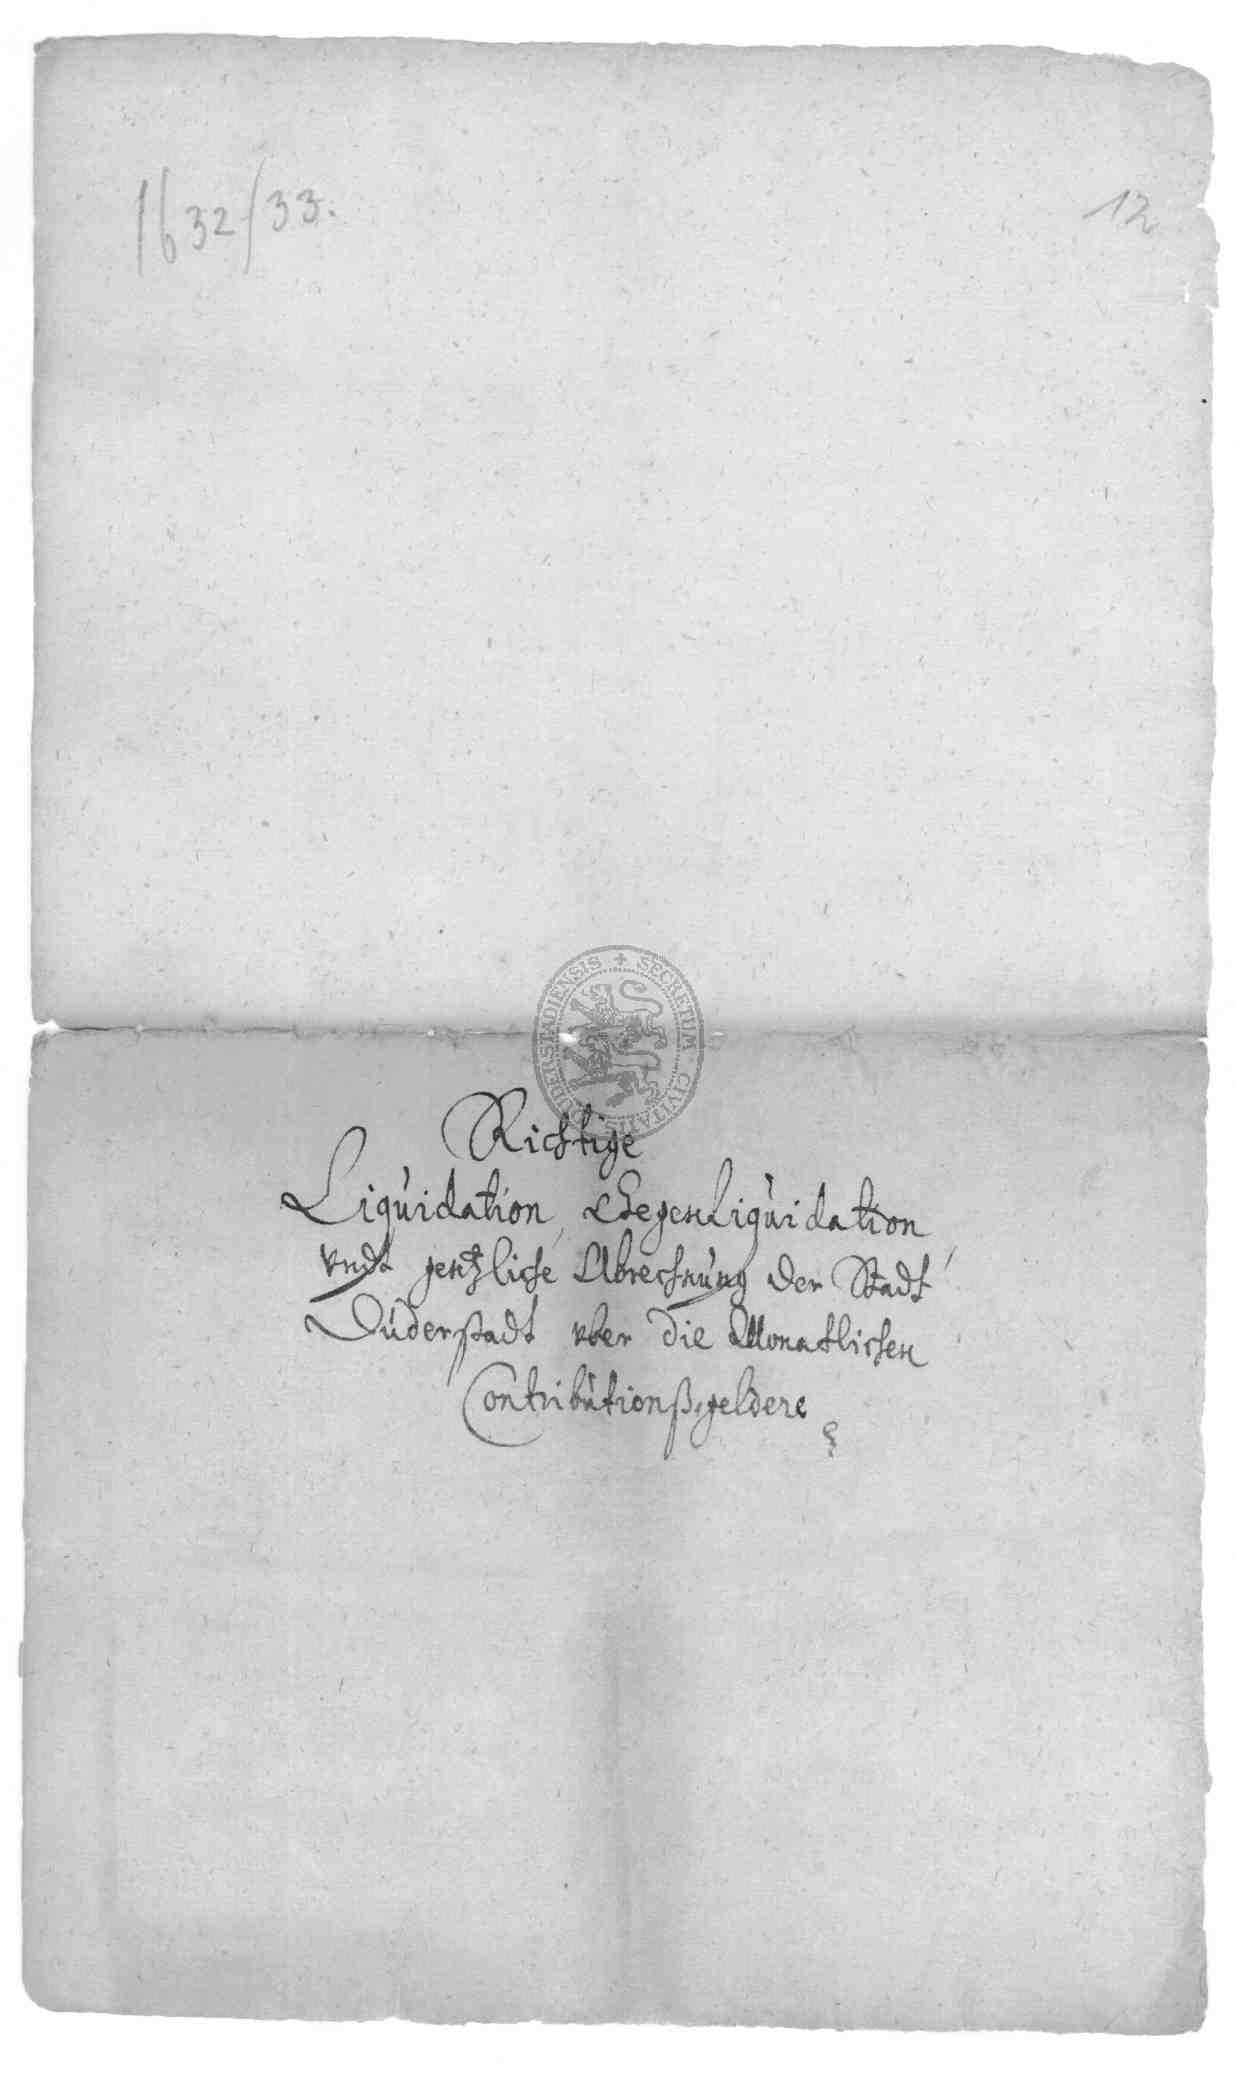 1632/33.
12
SECRETUM CIVITATIS DUDERSTADIENSIS
Richtige
Liquidation, GegenLiquidation,
vndt gentzliche Abrechnung der Stadt
Duderstadt vber die Monatlichen
Contributionßgeldere